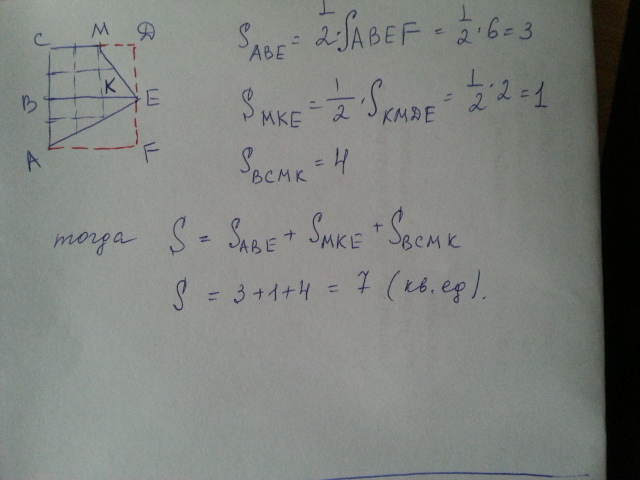 C M D
S_ABE = 1/2 · S ABEF = 1/2 · 6 = 3
B K E
S_MKE = 1/2 · S_KMDE = 1/2 · 2 = 1
A F
S_BCMK = 4
тогда S = S_ABE + S_MKE + S_BCMK
S = 3+1+4 = 7 (кв.ед).